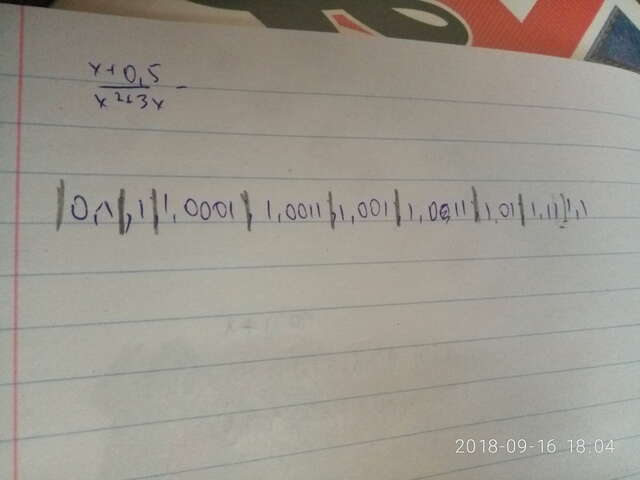 x+0,5
x²+3x -
|0,1|,1|1,0001|1,0011|1,001|1,0011|1,01|1,11|1,1
2018-09-16 18:04